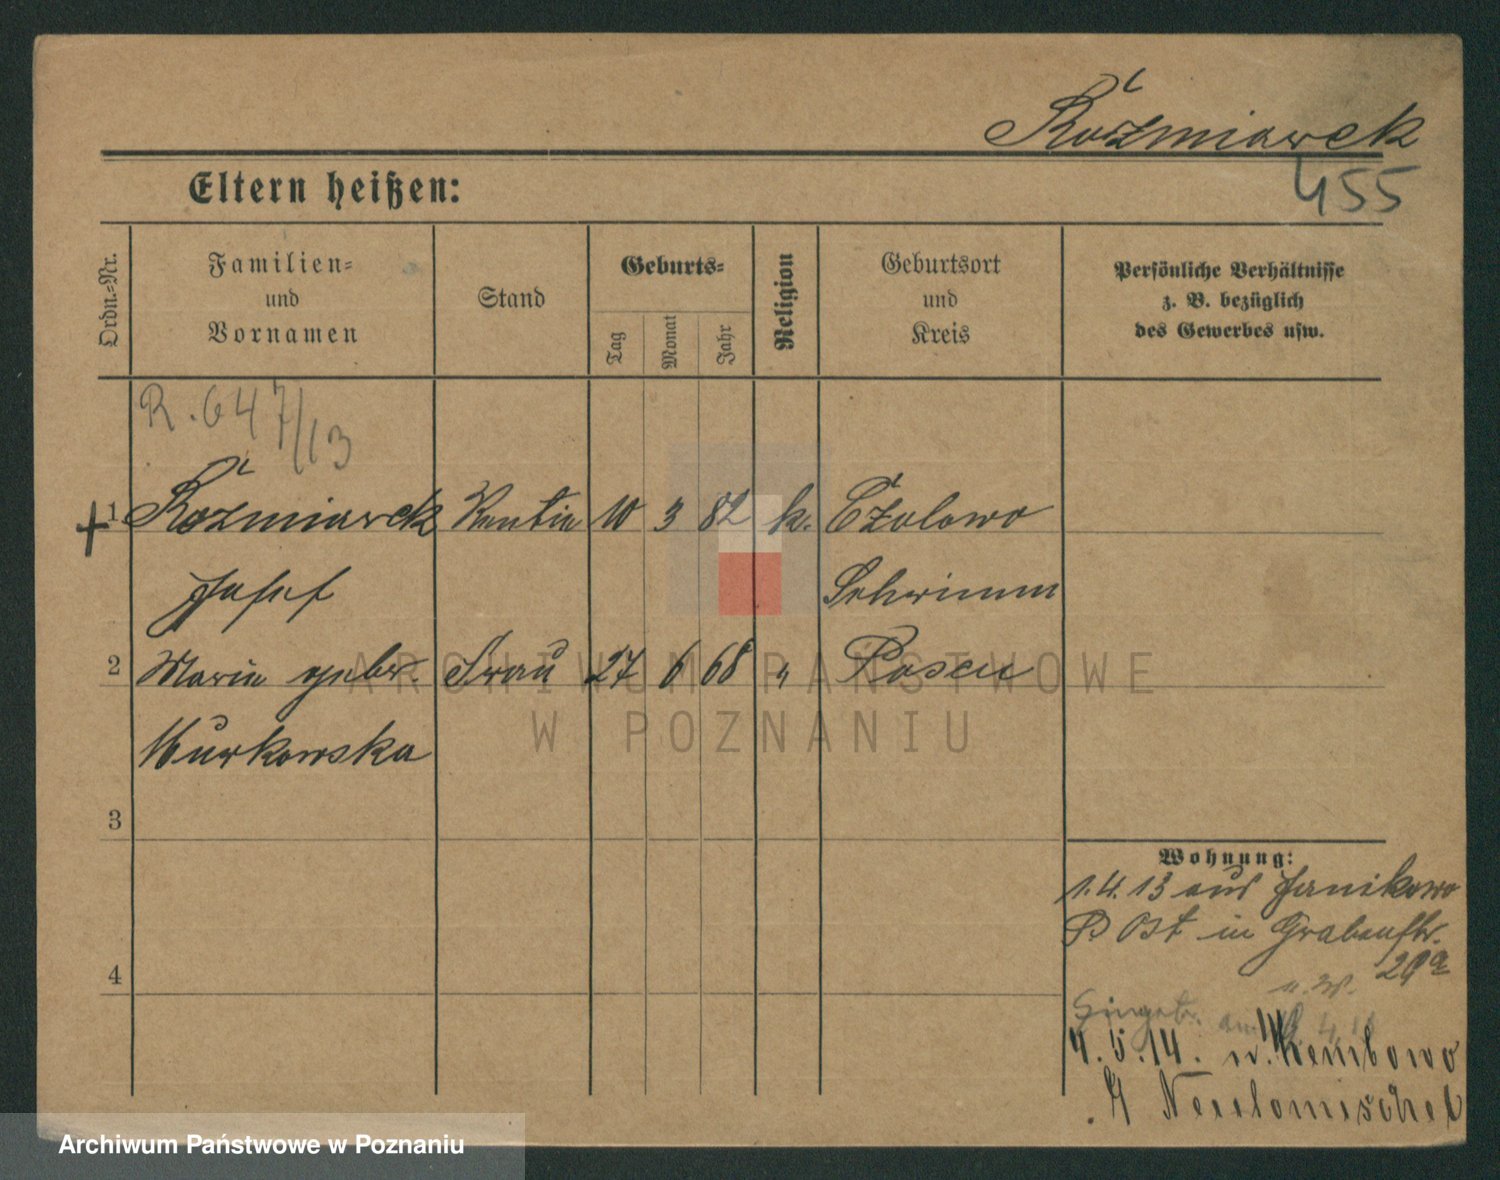 Koźmiarek
455
Eltern heißen:
Ordn.-Nr.
Familien-
und
Vornamen
Stand
Geburts-
Tag
Monat
Jahr
Religion
Geburtsort
und
Kreis
Persönliche Verhältnisse
z. B. bezüglich
des Gewerbes usw.
R. 647/13
+ 1 Koźmiarek 10 3 82 k.
Josef Schrimm
2 Maria gebr. Frau 27 6 68 " Posen
Murkowska
ARCHIWUM PAŃSTWOWE
W POZNANIU
3
Wohnung:
1.4.13 aus Janikowo
P Ost in Grabenstr.
4
4.5.14. n.
Neutomischel
Archiwum Państwowe w Poznaniu